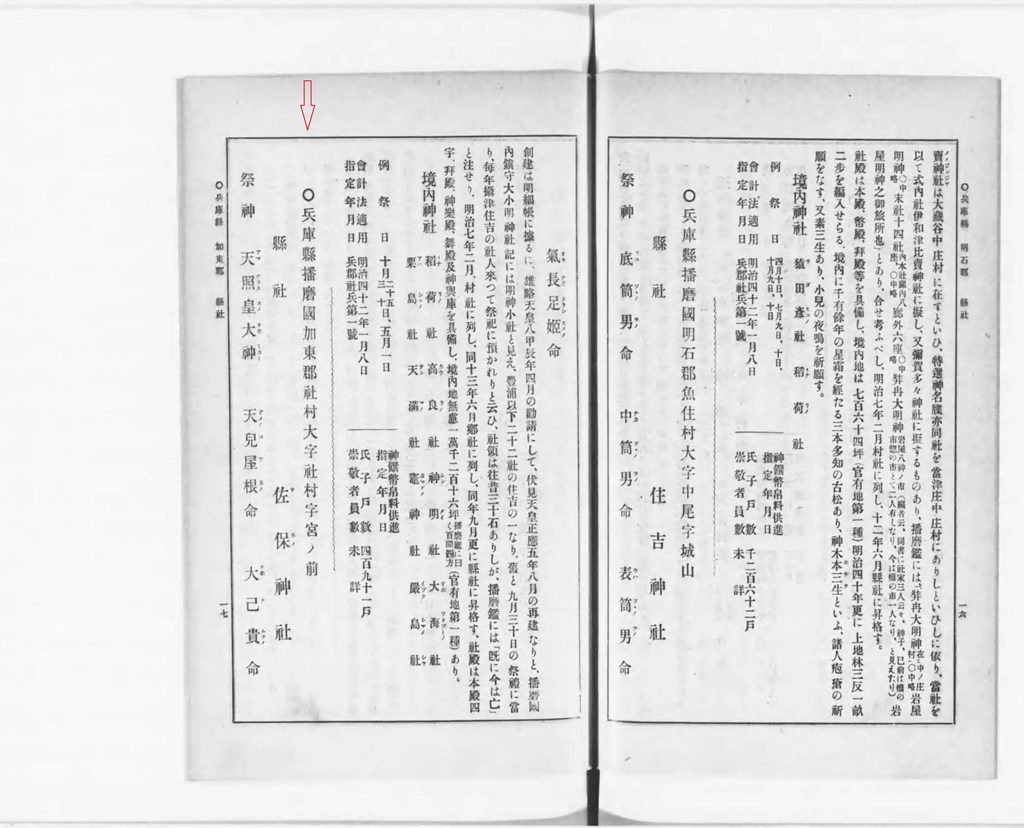 ○兵庫縣 明石郡 縣社
一六
賣神社は大藏谷中庄村に在すといひ、特選神名牒亦同社を當津庄中庄村にありしといひしに依り、當社を
以て式内社伊和津比賣神社に擬し、又彌賀多々神社に擬するものあり、播磨鑑には、「舁冉大明神
二步を編入せらる、境内に千有餘年の星霜を經たる三本多知の古松あり、神木本三生といふ、諸人疱瘡の祈
屋明神之御旅所也」とあり、合せ考ふべし、明治七年二月村社に列し、十二年六月縣社に昇格す。
社殿は本殿、幣殿、拜殿等を具備し、境内地は七百六十四坪(官有地第一種)明治四十年更に上地林三反一畝
願をなす、又素三生あり、小兒の夜鳴を祈願す。
境内神社 猿田彥社 稻荷社
例祭日 四月十日、七月九日、十日、十月九日、十日
會計法適用 明治四十二年一月八日
指定年月日 兵庫縣社兵第一號
神饌幣帛料供進
指定年月日
氏子戶數 千二百六十二戶
崇敬者員數 未詳
○兵庫縣播磨國明石郡魚住村大字中尾字城山
縣社 住吉神社
祭神 底筒男命 中筒男命 表筒男命
氣長足姬命
創建は明細帳に據るに、雄略天皇八甲辰年四月の勸請にして、伏見天皇正應五年八月の再建なりと、播磨國
內鎭守大小明神社記には明神小社と見え、豊浦以下二十二社の住吉の一なり、舊と九月三十日の祭禮に當
り、每年攝津住吉の社人來つて祭祀に預かれりと云ひ、社領は往昔三十石ありしが、播磨鑑には「既に今は亡」
と注せり、明治七年二月、村社に列し、同十三年六月鄕社に列し、同年九月更に縣社に昇格す、社殿は本殿四
宇、拜殿、神樂殿、舞殿及神輿庫を具備し、境內地無慮一萬千二百十六坪(官有地第一種)あり。
境內神社 稻荷社 高良社 神明社 大海社
粟島社 天滿社 竈神社 嚴島社
例祭日 十月二十五日、五月一日
十月三十日
會計法適用 明治四十二年一月八日
指定年月日 兵郡社兵第一號
神饌幣帛料供進
指定年月日
氏子戶數 四百九十一戶
崇敬者員數 未詳
○兵庫縣播磨國加東郡社村大字社村字宮ノ前
縣社 佐保神社
祭神 天照皇大神 天兒屋根命 大己貴命
○兵庫縣 加東郡 縣社
一七